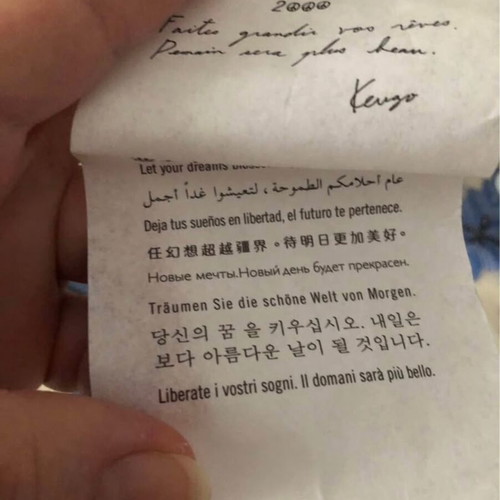 2000
Faites grandir vos rêves.
Demain sera plus beau.
Kenzo
Let your dreams
عام أحلامكم الطموحة ، لتعيشوا غداً أجمل
Deja tus sueños en libertad, el futuro te pertenece.
任幻想超越疆界。待明日更加美好。
Новые мечты.Новый день будет прекрасен.
Träumen Sie die schöne Welt von Morgen.
당신의 꿈 을 키우십시오. 내일은
보다 아름다운 날이 될 것입니다.
Liberate i vostri sogni. Il domani sarà più bello.